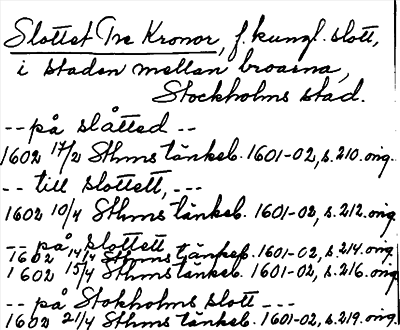 Slottet Tre Kronor, f. kungl. slott,
i staden mellan broarna,
Stockholms stad.
-- på slåtted --
1602 17/2 Sthms tänkeb. 1601-02, s. 210. orig.
-- till slottett, ---
1602 10/4 Sthms tänkeb. 1601-02, s. 212. orig.
-- på slottett --
1602 14/4 Sthms tänkeb. 1601-02, s. 214. orig.
1602 15/4 Sthms tänkeb. 1601-02, s. 216. orig.
-- på Stokholms slott ---
1602 21/4 Sthms tänkeb. 1601-02, s. 219. orig.